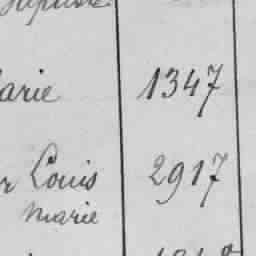 arie 1347
r Louis 2917
marie